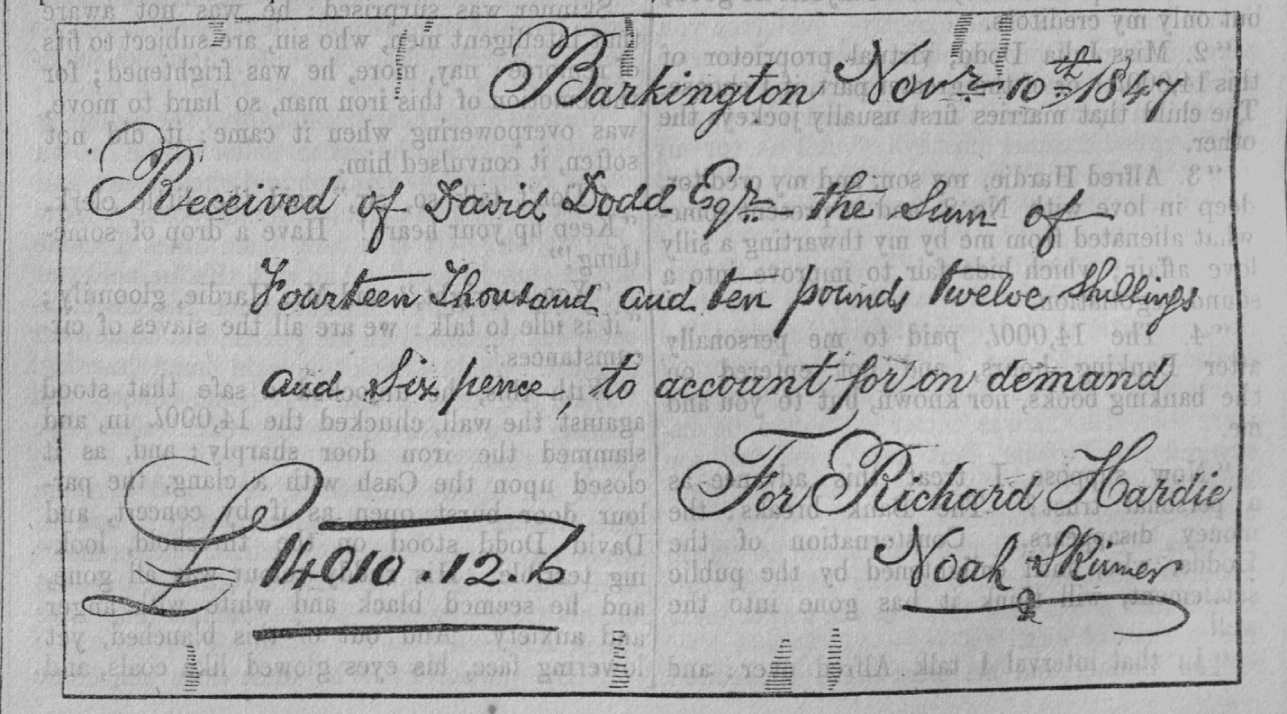 Barkington Novr 10th 1847
Received of David Dodd Esqr the Sum of
Fourteen Thousand and ten pounds twelve Shillings
and Six pence, to account for on demand
For Richard Hardie
£14010.12.6
Noah Skinner